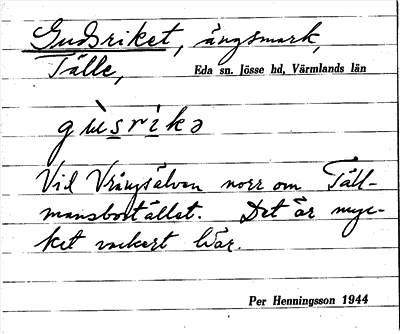 Gudsriket, ängsmark,
Tälle, Eda sn. Jösse hd, Värmlands län
gùsrìkə
Vid Vrångsälven norr om Täll-
mansbostället. Det är myc-
ket vackert där.
Per Henningsson 1944